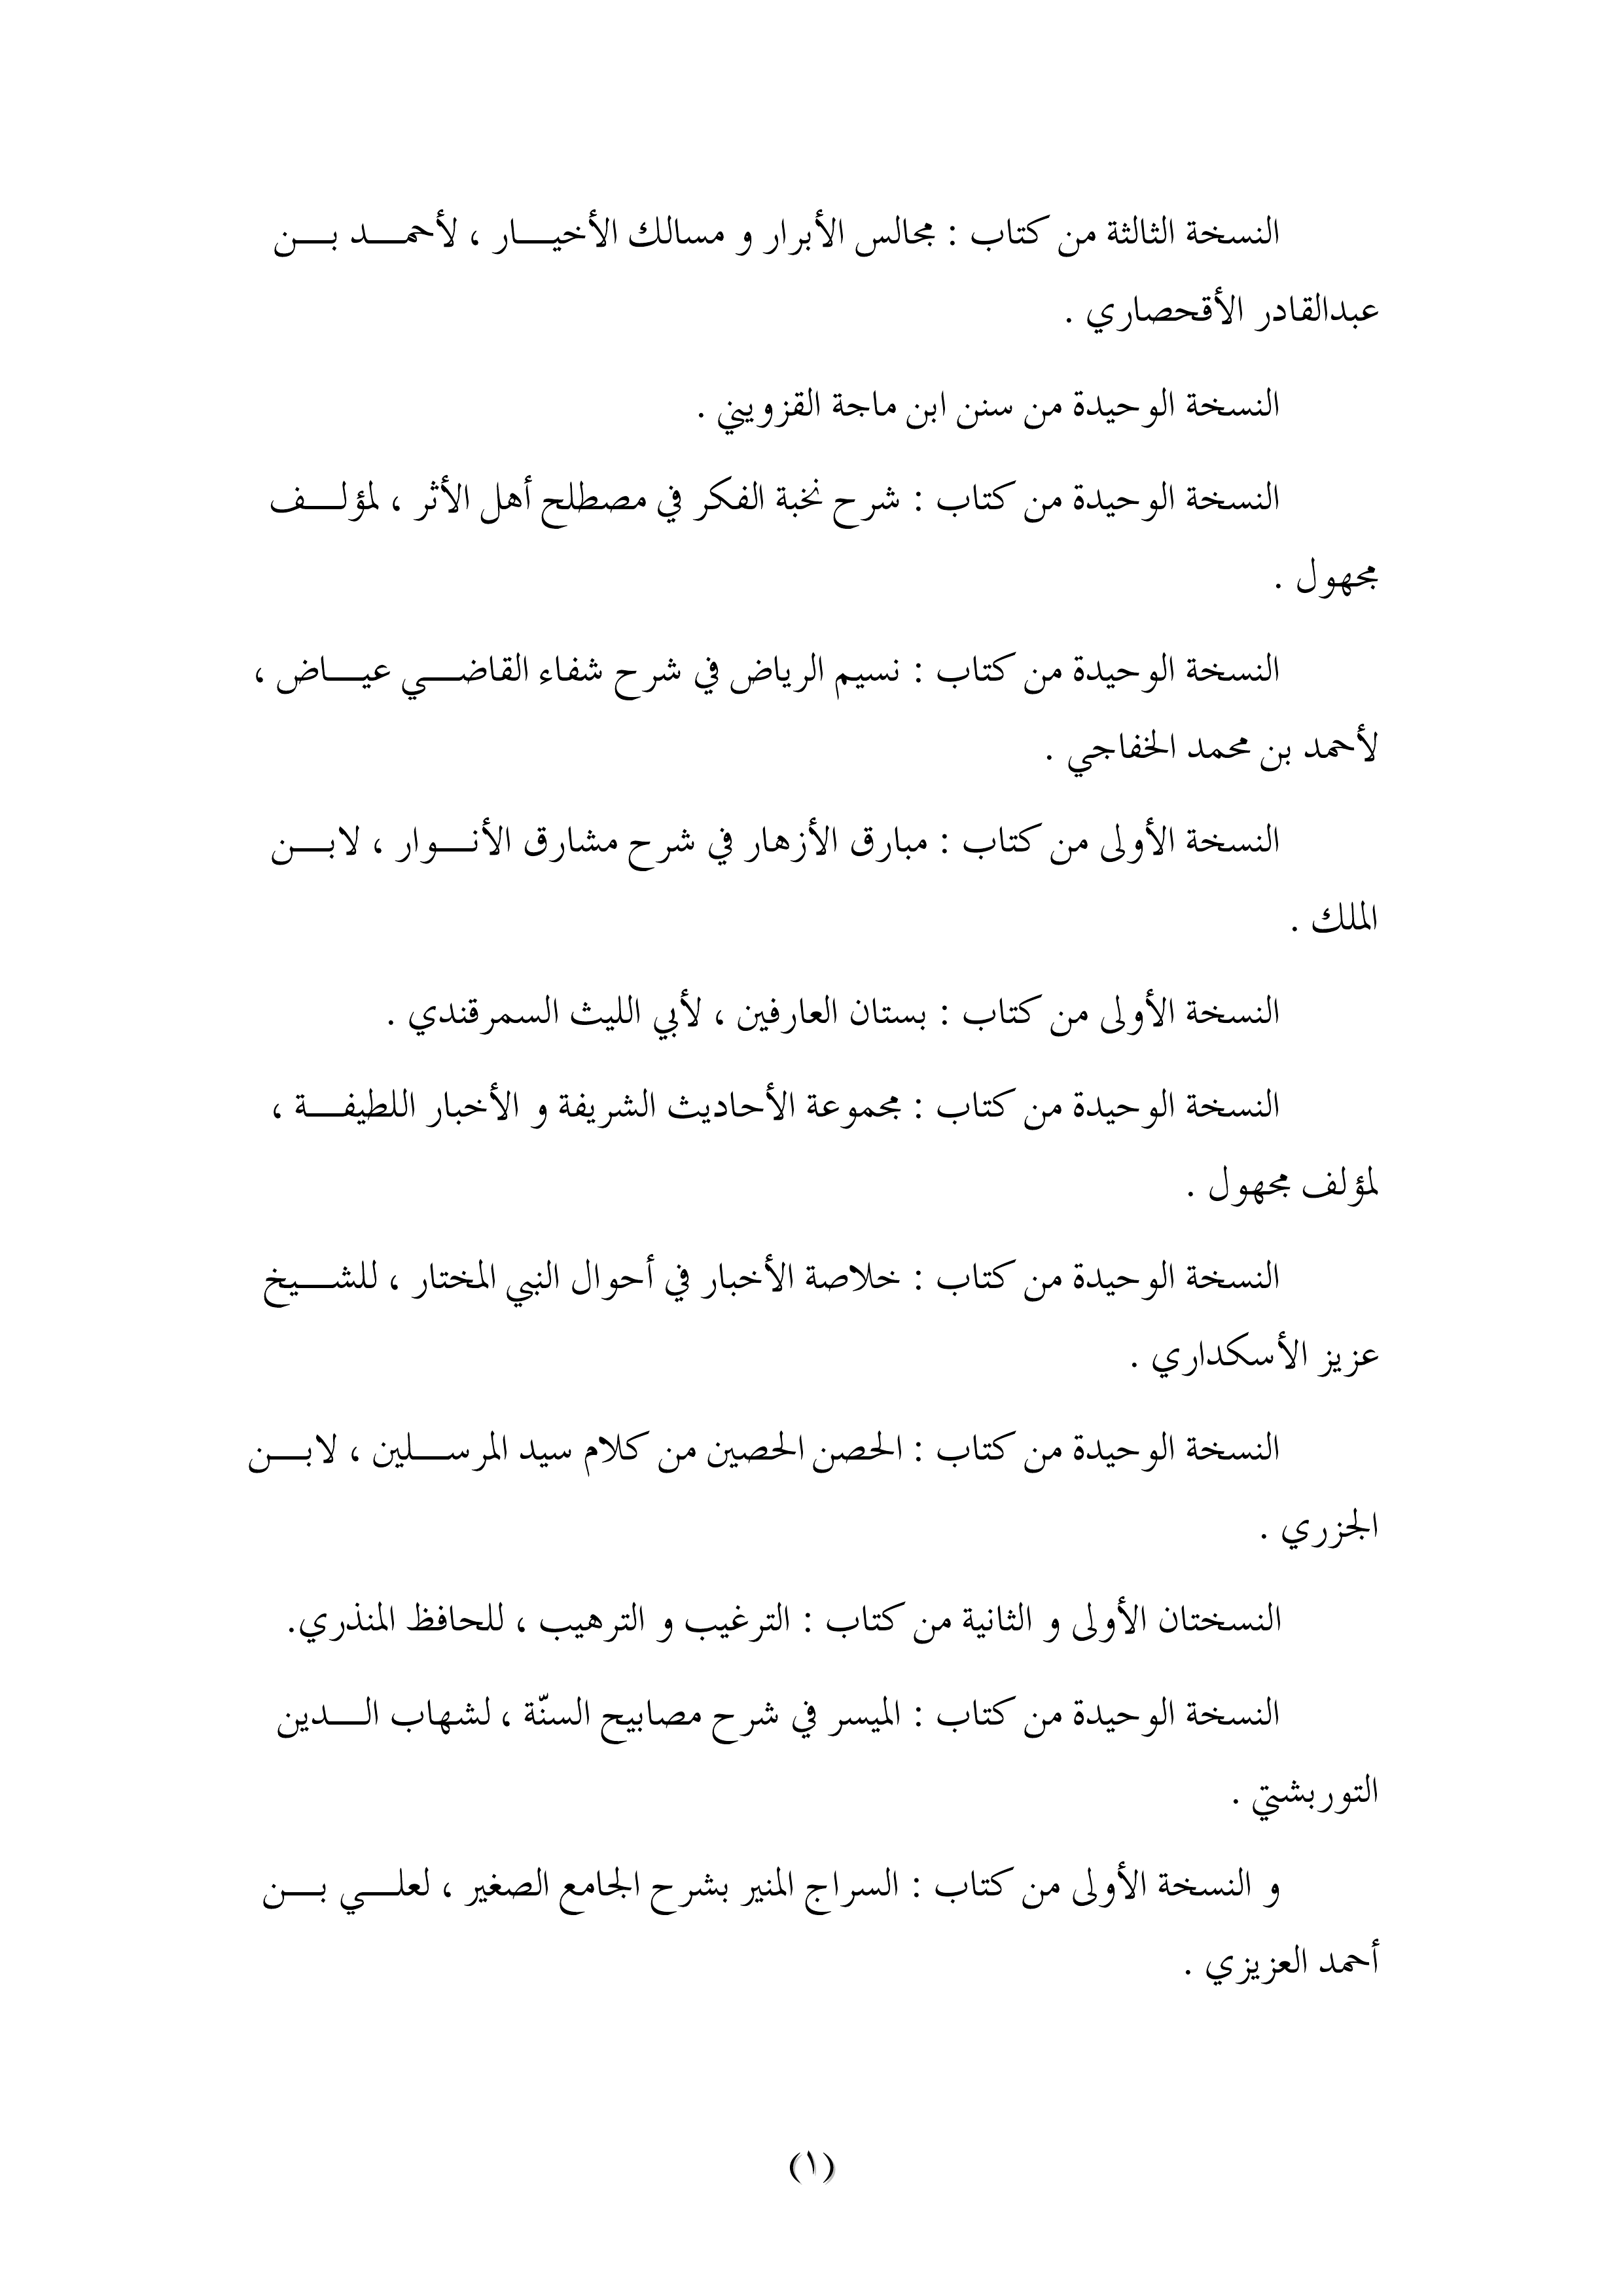 النسخة الثالثة من كتاب : مجالس الأبرار و مسالك الأخيـــار ، لأحمـــد بـــن
عبدالقادر الأقحصاري .
النسخة الوحيدة من سنن ابن ماجة القزويني .
النسخة الوحيدة من كتاب : شرح نخبة الفكر في مصطلح أهل الأثر ، لمؤلـــف
مجهول .
النسخة الوحيدة من كتاب : نسيم الرياض في شرح شفاء القاضـــي عيـــاض ،
لأحمد بن محمد الخفاجي .
النسخة الأولى من كتاب : مبارق الأزهار في شرح مشارق الأنـــوار ، لابـــن
الملك .
النسخة الأولى من كتاب : بستان العارفين ، لأبي الليث السمرقندي .
النسخة الوحيدة من كتاب : مجموعة الأحاديث الشريفة و الأخبار اللطيفـــة ،
لمؤلف مجهول .
النسخة الوحيدة من كتاب : خلاصة الأخبار في أحوال النبي المختار ، للشـــيخ
عزيز الأسكداري .
النسخة الوحيدة من كتاب : الحصن الحصين من كلام سيد المرســـلين ، لابـــن
الجزري .
النسختان الأولى و الثانية من كتاب : الترغيب و الترهيب ، للحافظ المنذري.
النسخة الوحيدة من كتاب : الميسر في شرح مصابيح السنّة ، لشهاب الـــدين
التوربشتي .
و النسخة الأولى من كتاب : السراج المنير بشرح الجامع الصغير ، لعلـــي بـــن
أحمد العزيزي .
(١)